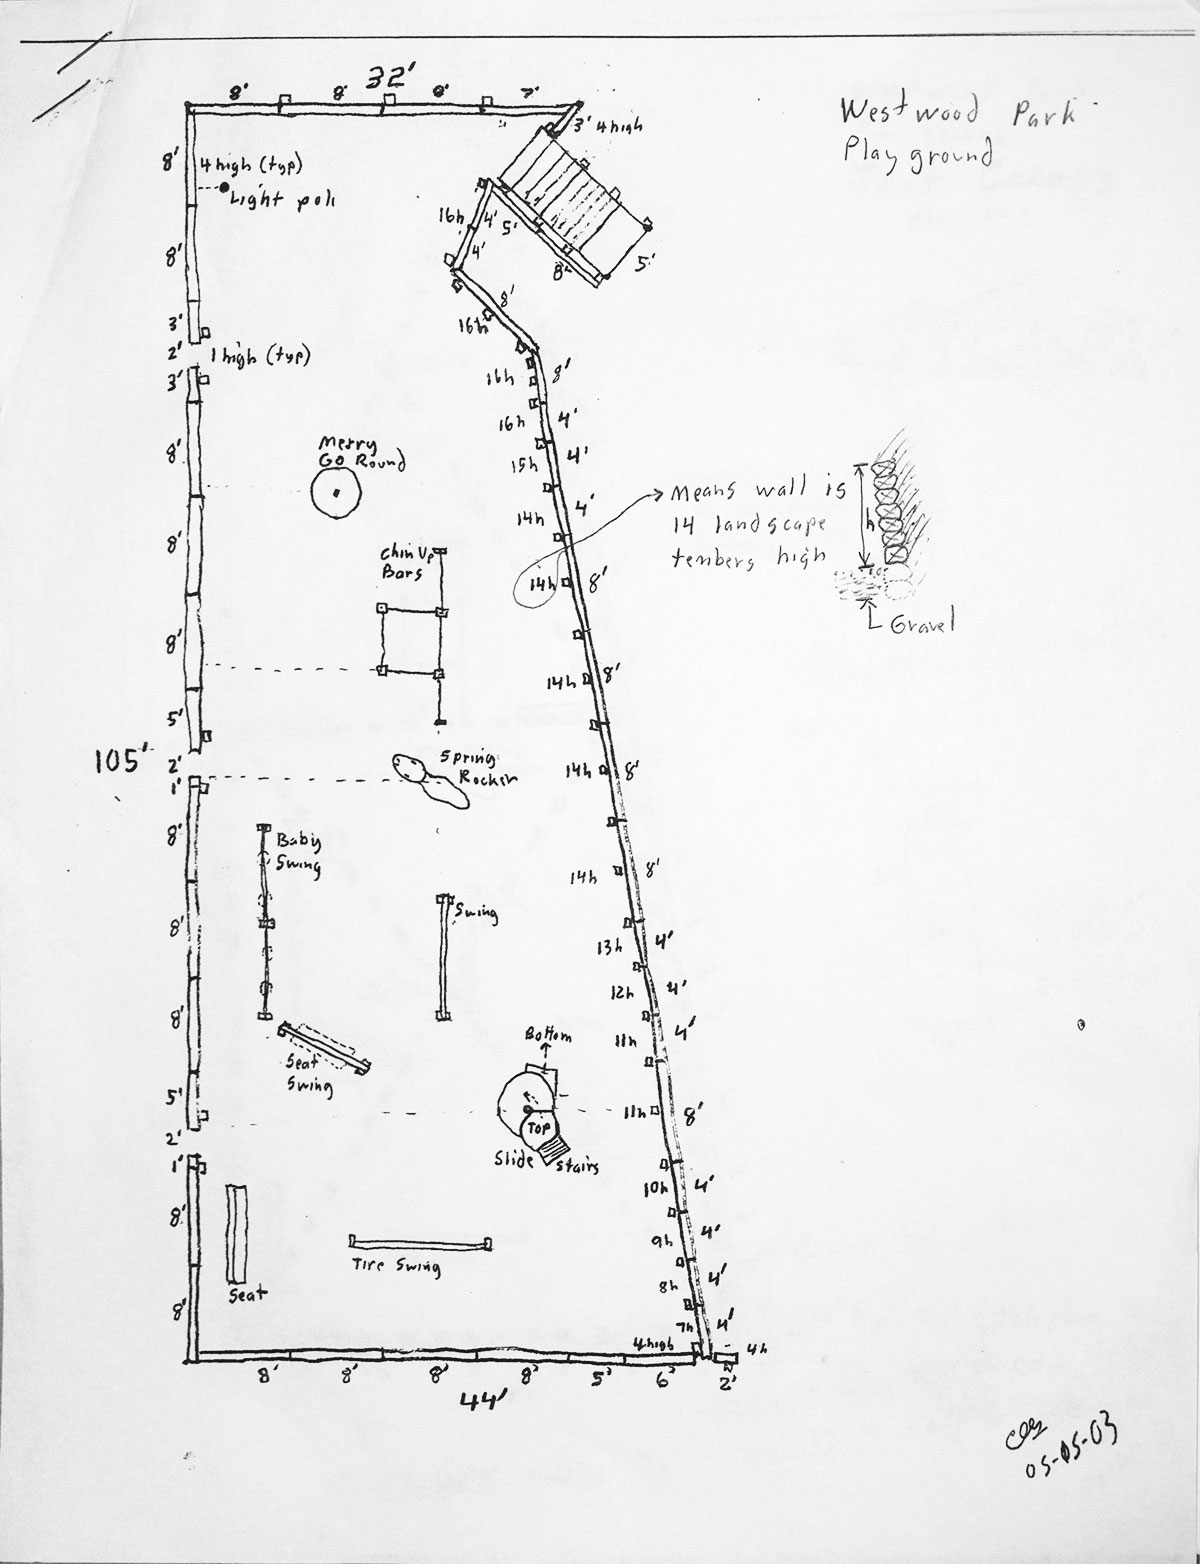 32'
8' 8' 8' 7'
Westwood Park
Playground
3' 4 high
8' 4 high (typ)
Light pole
16h 4' 5'
4'
8' 8' 5'
8'
16h
3'
2' 1 high (typ)
3'
16h 8'
16h 4'
8' Merry
Go Round
15h 4'
14h 4'
Means wall is
14 landscape
tembers high
h
Gravel
8' Chin Up
Bars
14h 8'
8'
14h 8'
5'
105'
2' Spring
Rocker
1'
14h 8'
8' Baby
Swing
14h 8'
8' Swing
13h 4'
12h 4'
8' Seat
Swing
11h 4'
Bottom
5'
11h 8'
2' Top
Slide Stairs
1'
10h 4'
8'
9h 4'
Tire Swing
8h 4'
Seat
8'
7h 4'
4 high 4h
8' 8' 8' 8' 5' 6' 2'
44'
05-05-03